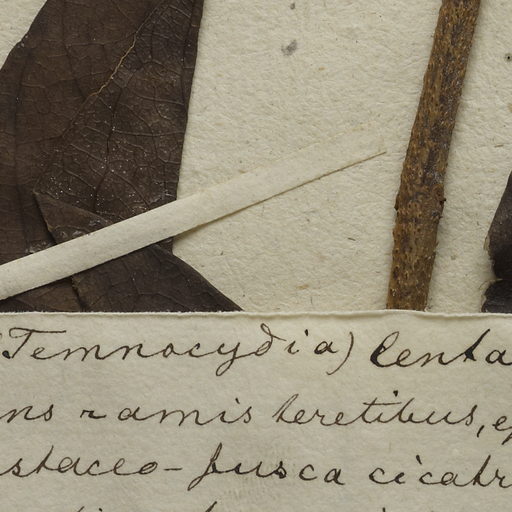 (Temnocydia) lenta
ns ramis teretibus, e
staceo-fusca cicatr